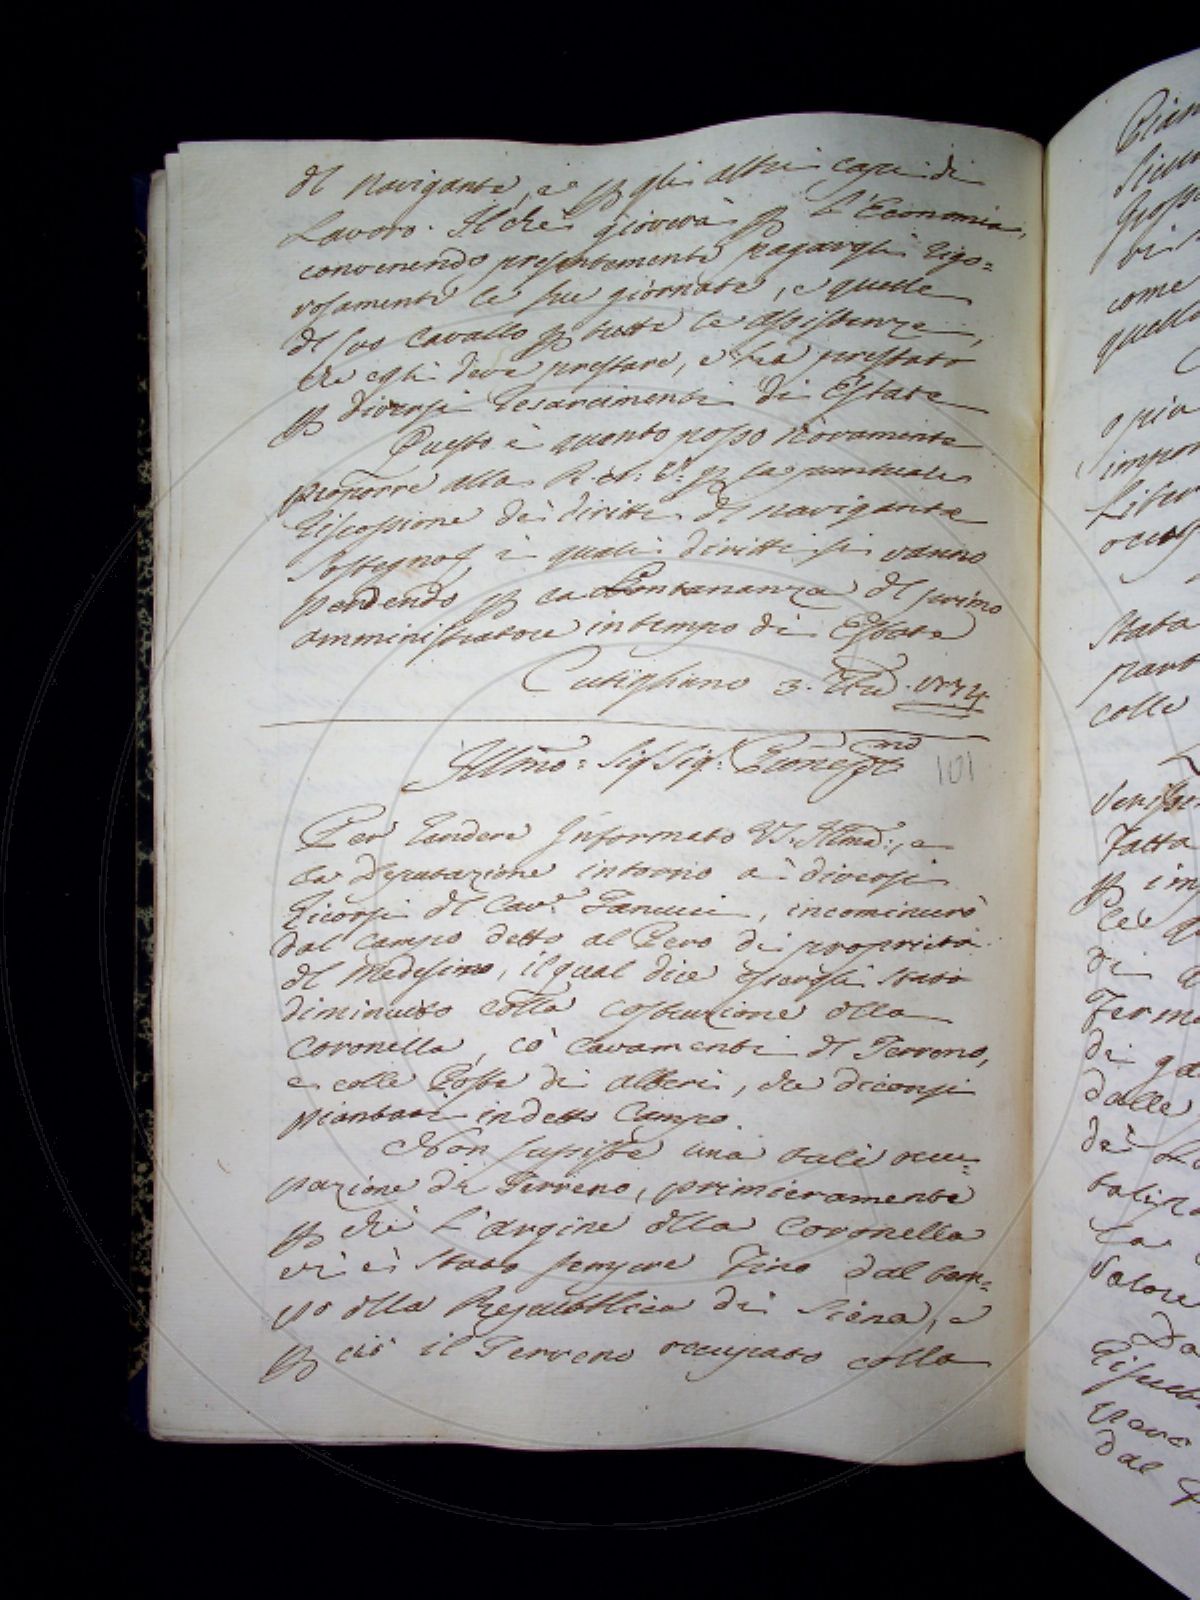 dl navigante, e p gli altri capi di
Lavoro. Il che gioverà p L'Economia,
convenendo presentemente pagargli rigo=
rosamente le sue giornate, e quelle
dl suo Cavallo p tutte le assistenze,
che egli deve prestare, e ha prestato
p diversi resarcimenti di Estate
Questo è quanto posso novamente
proporre alla R. p la puntuale
riscossione de' diritti dl navigante
Sostegno, i quali diritti si vanno
perdendo p la Lontananza dl primo
amministratore in tempo di Estate
Cutigliano 3. 1774.
Illmo: Sig Sig:
101
Per rendere informato VS. Illma:, e
la Deputazione intorno a' diversi
ricorsi dl Cav.e Fanucci, incomincerò
dal campo detto al Pero di proprietà
dl Medesimo, il qual dice essergli stato
diminuito colla costruzione dlla
Coronella, co' cavamenti dl Terreno,
e colle Poste di alberi, che diconsi
piantati in detto Campo.
Non sussiste una tale occu=
pazione di Terreno, primieramente
p chè L'argine dlla Coronella
vi è stato sempre fino dal tem=
po dlla Repubblica di Siena, e
p ciò il Terreno occupato colla
Pian
come
quella
o più
impor
stata
colle
Fatta
p imp
di
Ferm
di ga
dalle
de' La
La
Valore
Da
dal